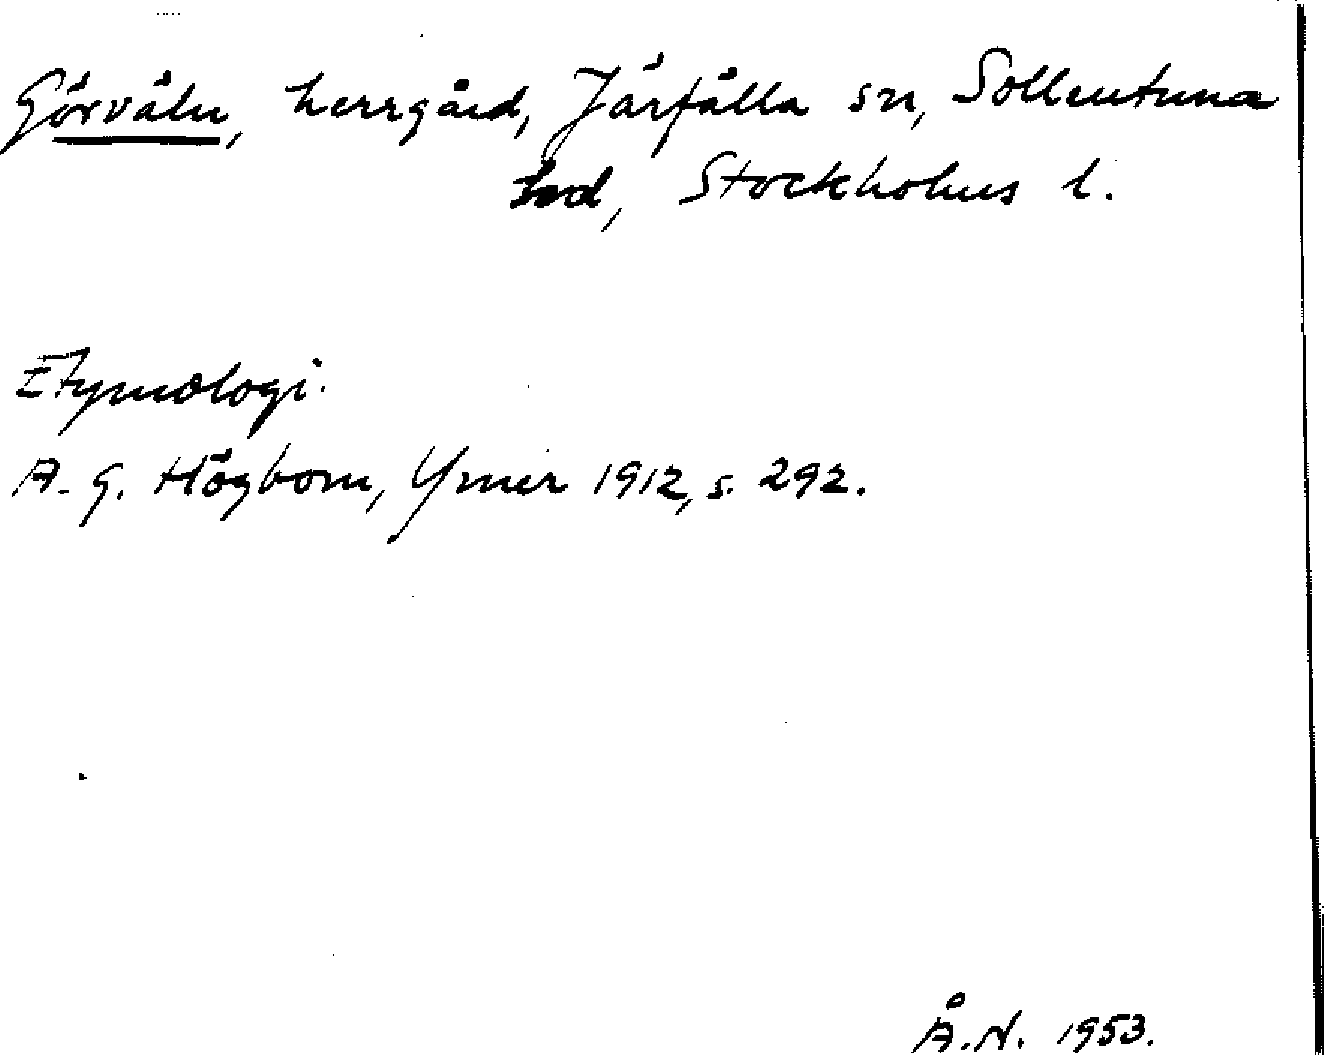 Görväln, herrgård, Järfälla sn, Sollentuna
hd, Stockholms l.
Etymologi.
A. G. Högbom, Ymer 1912, s. 292.
Å.N. 1953.